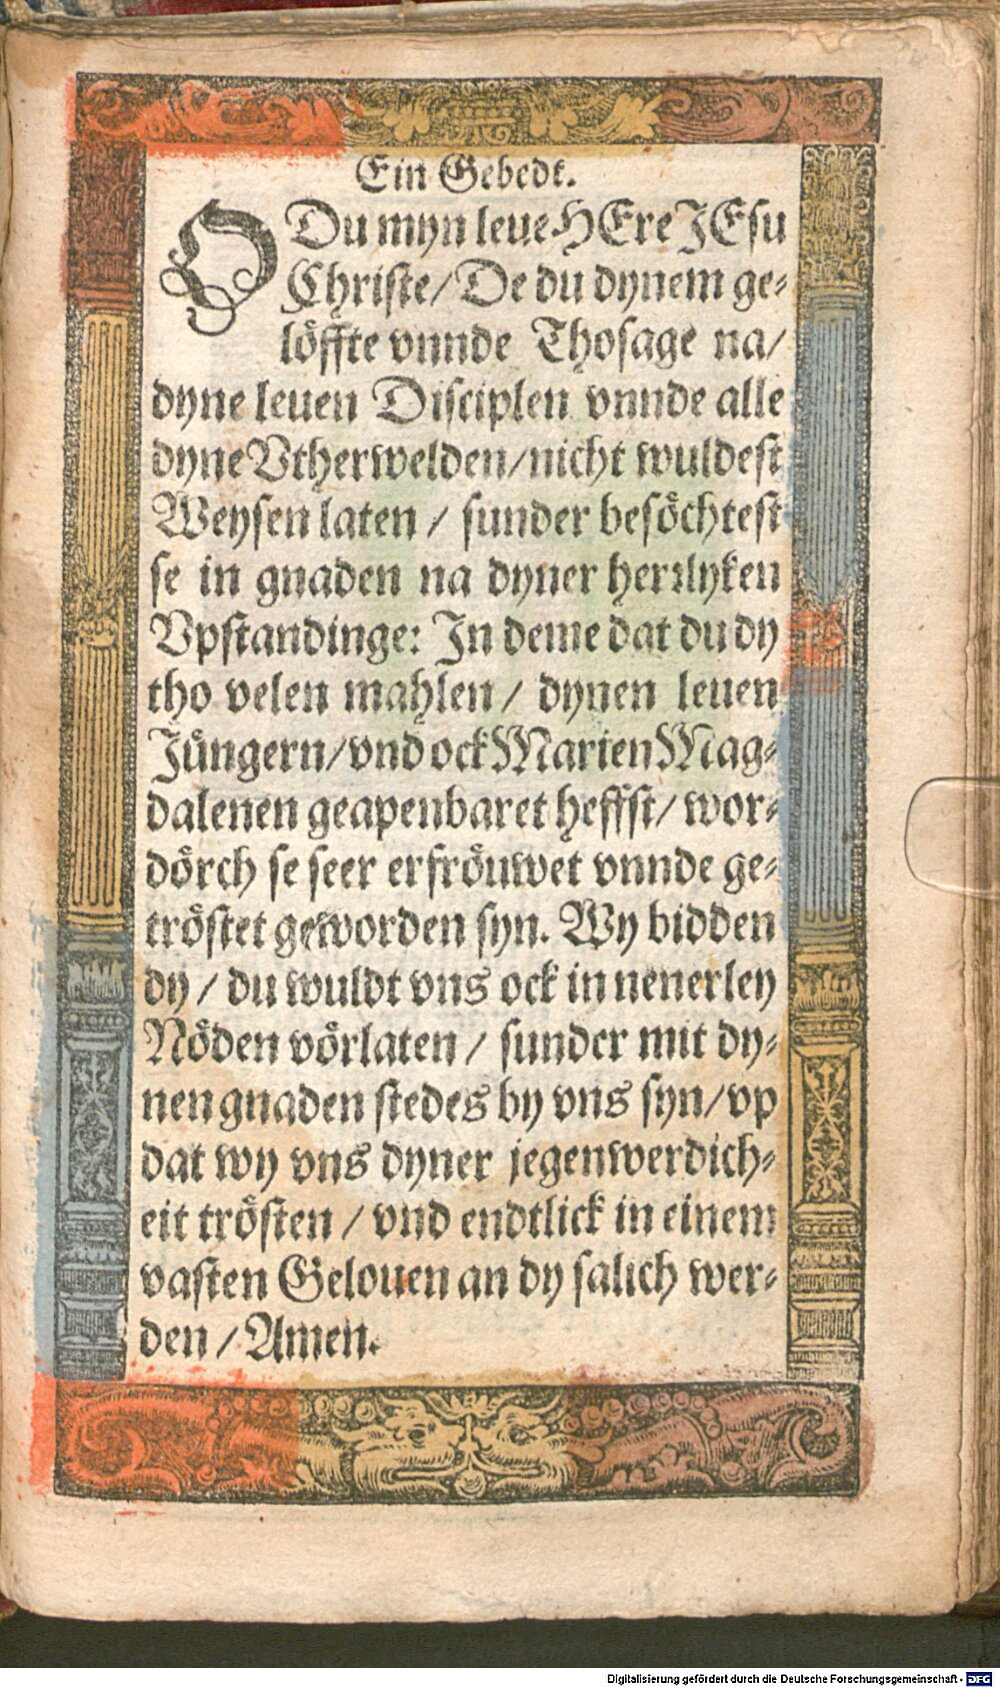 Ein Gebedt.
O Du myn leue HEre JEsu
Christe/ De du dynem ge-
löffte vnnde Thosage na/
dyne leuen Disciplen vnnde alle
dyne Vtherwelden/nicht wuldest
Weysen laten / sunder besöchtest
se in gnaden na dyner herrlyken
Vpstandinge: In deme dat du dy
tho velen mahlen / dynen leuen
Jüngern/vnd ock Marien Mag-
dalenen geapenbaret heffst/ wor-
dörch se seer erfröuwet vnnde ge-
tröstet geworden syn. Wy bidden
dy / du wuldt vns ock in nenerley
Nöden vörlaten / sunder mit dy-
nen gnaden stedes by vns syn/vp
dat wy vns dyner jegenwerdich-
eit trösten / vnd endtlick in einem
vasten Gelouen an dy salich wer-
den / Amen.
Digitalisierung gefördert durch die Deutsche Forschungsgemeinschaft - DFG